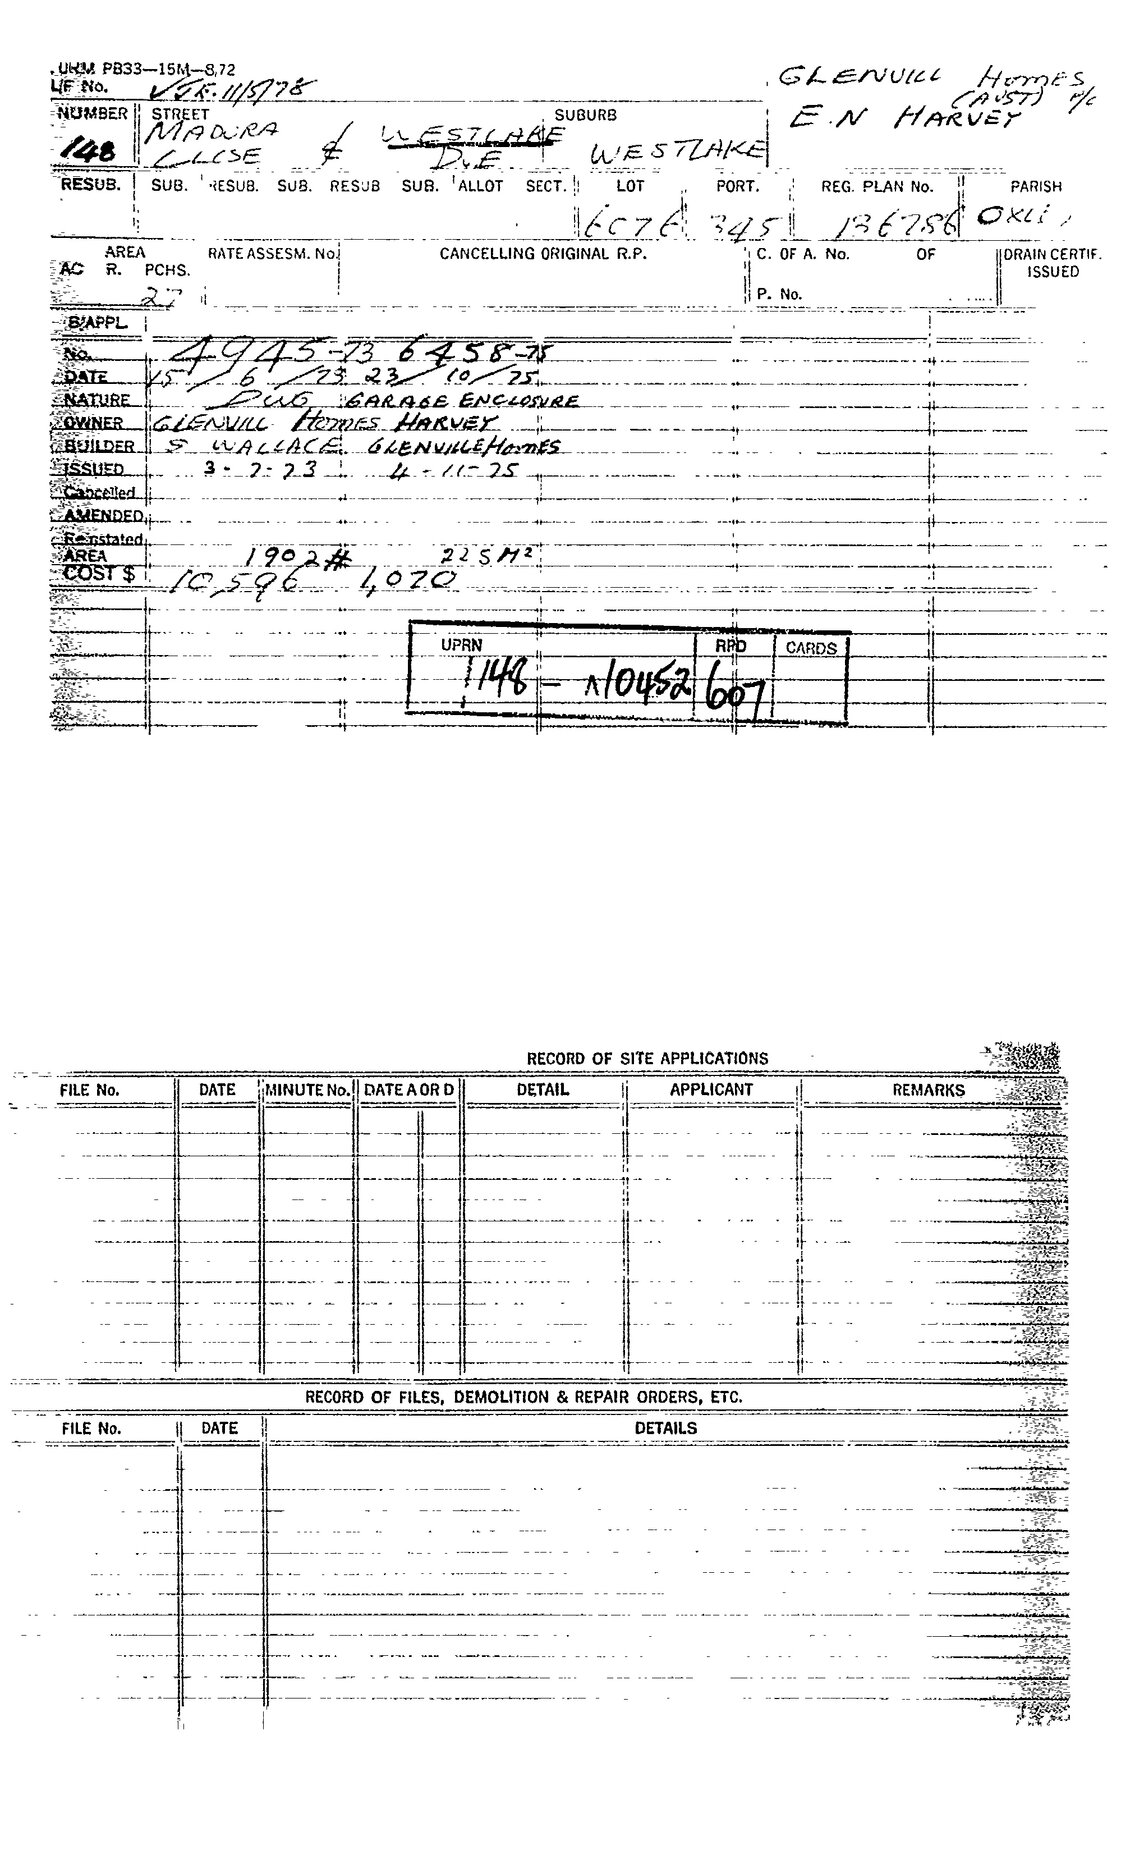 URM PB33—15M—8,72
L/F No.
11/5/78
GLENVILL HOMES
(AUST) P/L
E.N HARVEY
NUMBER STREET SUBURB
148 MADURA WESTLAKE
& DVE WESTLAKE
RESUB. SUB. RESUB. SUB. RESUB SUB. ALLOT SECT. LOT PORT. REG. PLAN No. PARISH
345 136786
AREA RATE ASSESM. No. CANCELLING ORIGINAL R.P. C. OF A. No. OF DRAIN CERTIF.
AC R. PCHS. ISSUED
27 P. No.
B/APPL
No. 4945-73 6458-75
DATE 15/6/73 23/10/75
NATURE DWG GARAGE ENCLOSURE
OWNER GLENVILL HOMES HARVEY
BUILDER S WALLACE GLENVILLE HOMES
ISSUED 3-7-73 4-11-75
Cancelled
AMENDED
Reinstated
AREA 1902# 225 M²
COST $ 10,596 1,070
UPRN RPD CARDS
148 — 10452 607
RECORD OF SITE APPLICATIONS
FILE No. DATE MINUTE No. DATE A OR D DETAIL APPLICANT REMARKS
RECORD OF FILES, DEMOLITION & REPAIR ORDERS, ETC.
FILE No. DATE DETAILS